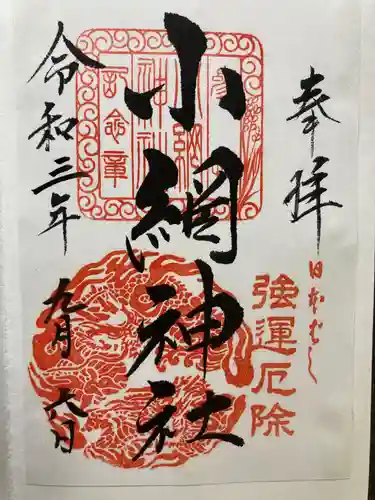 奉拝
日本ばし
強運厄除
小網神社
令和三年
九月六日